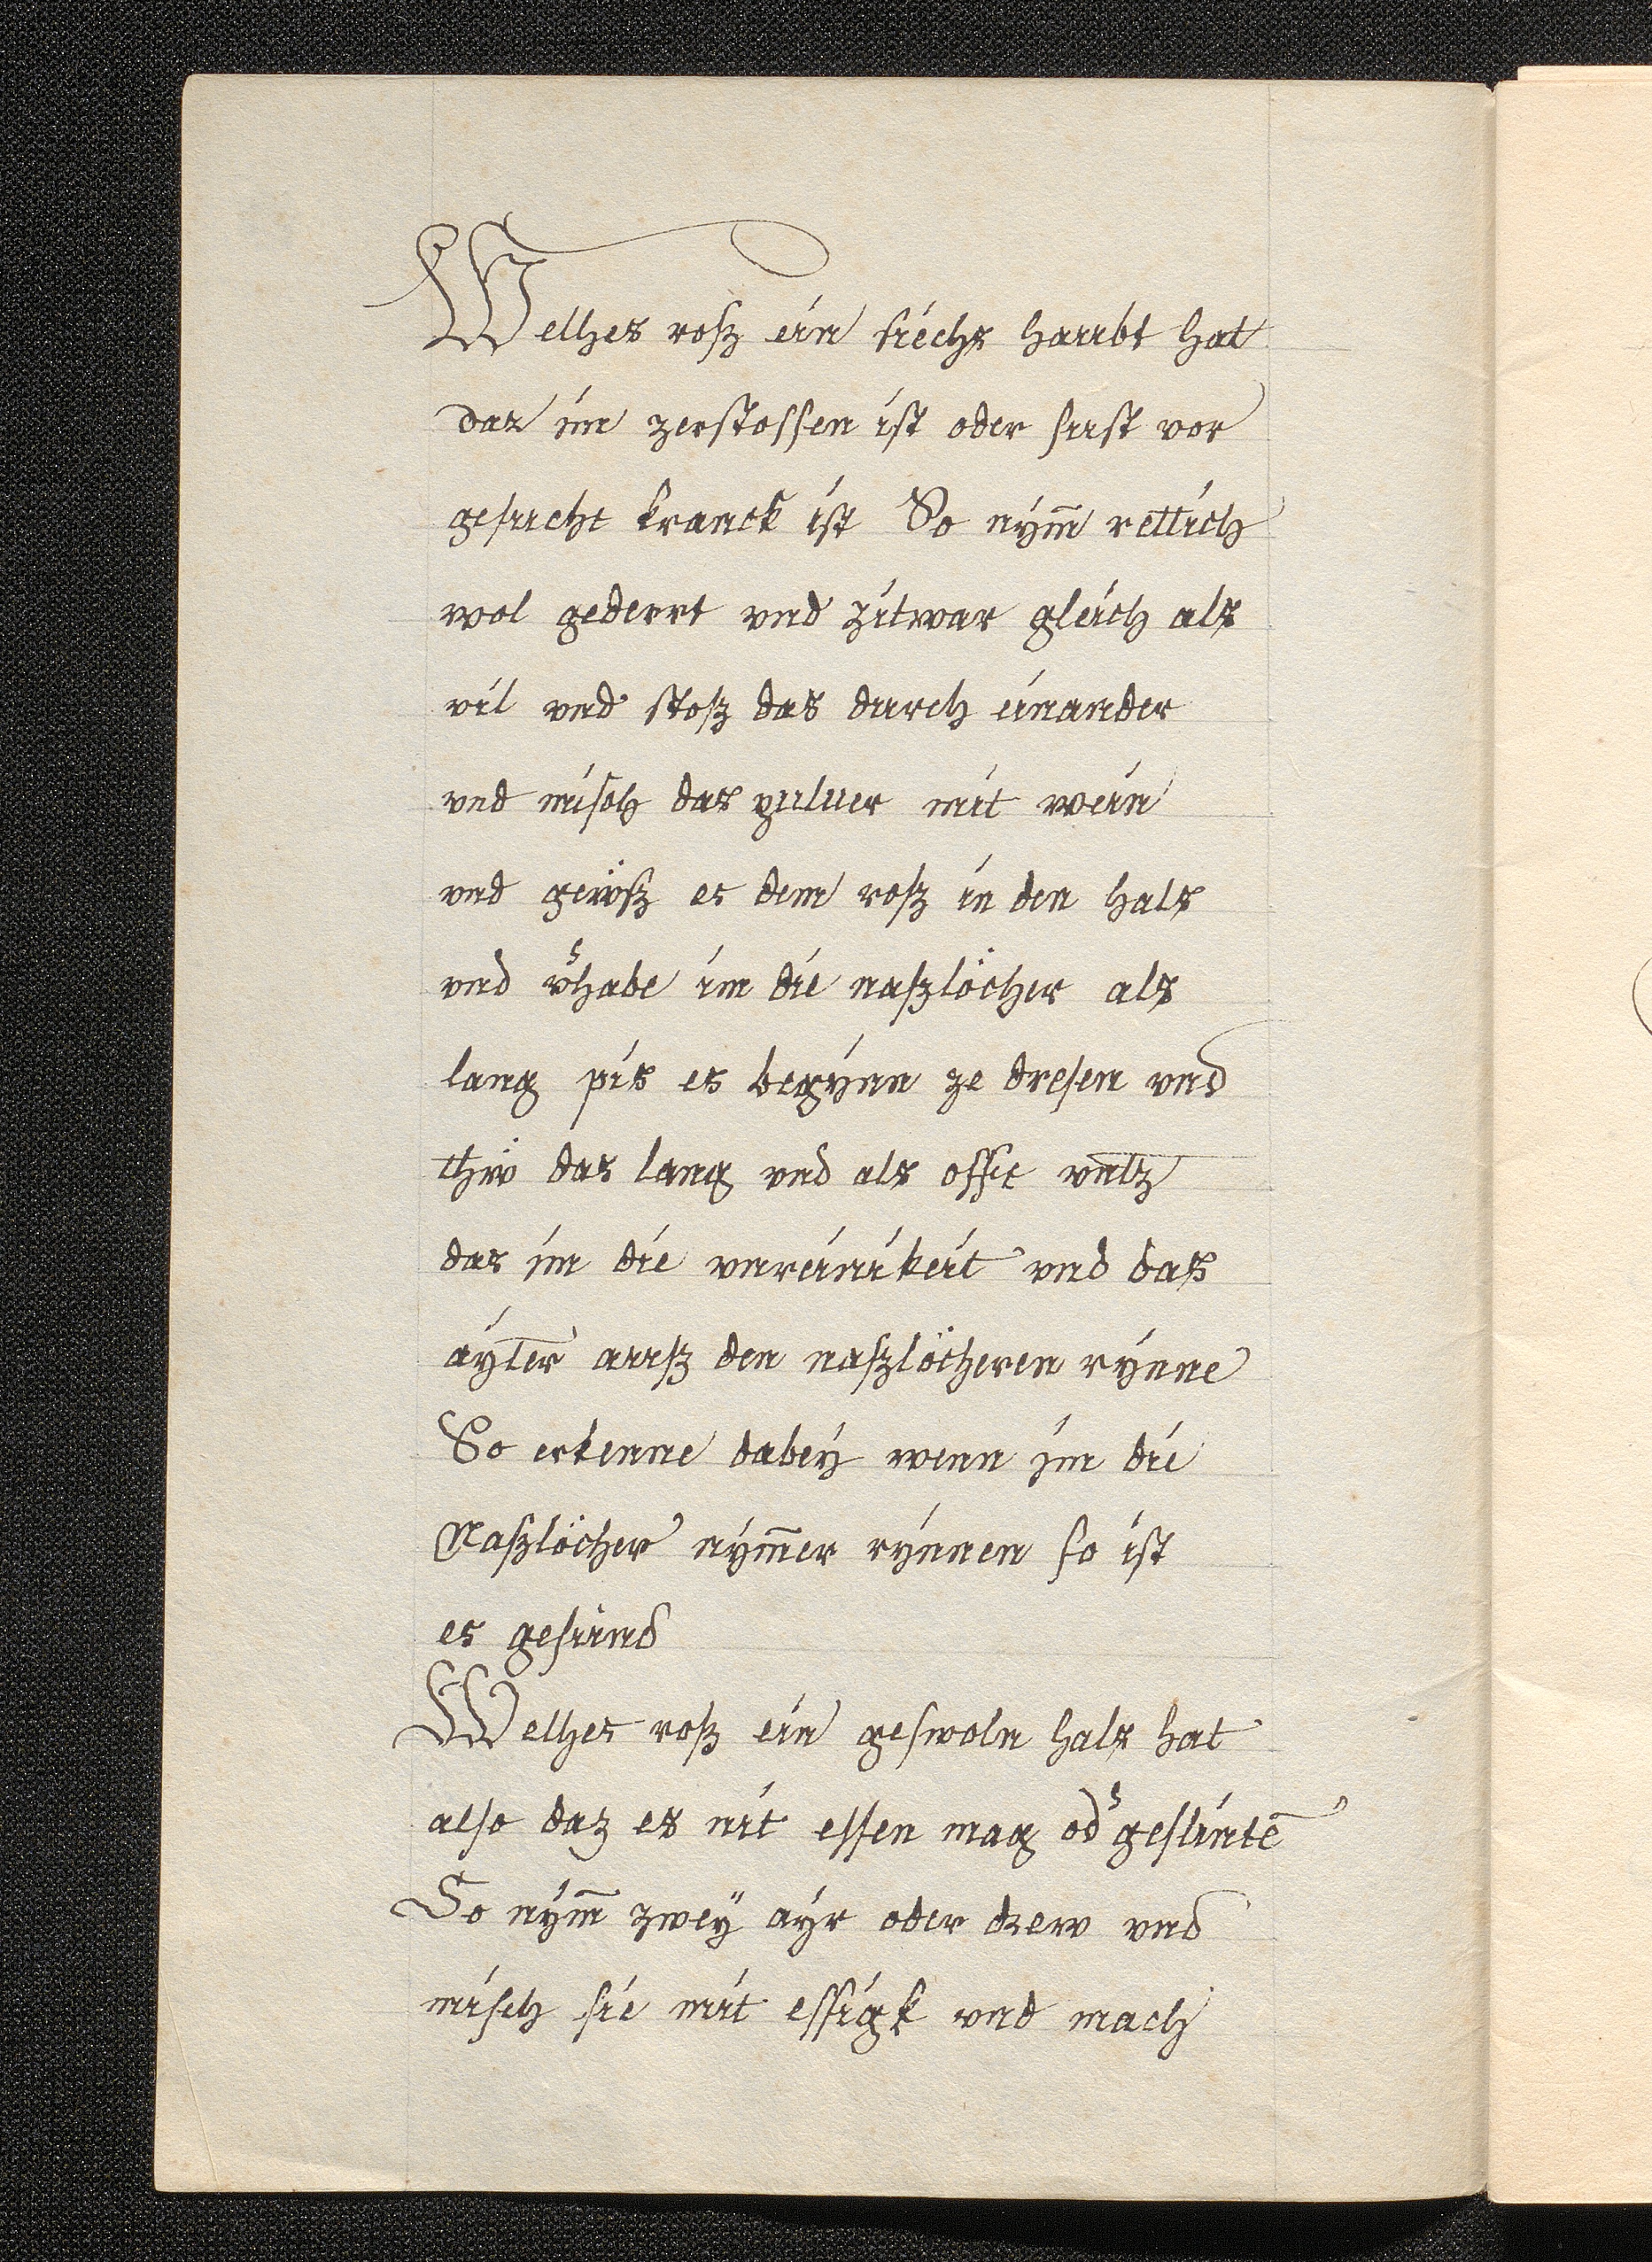 Welhes rosz ein siechs haubt hat
daz im zerstossen ist oder sust vor
gesucht kranck ist So nym̄ rettich
wol gederrt vnd zitwar gleich als
vil vnd stosz das durch einander
vnd misch das puluer mit wein
vnd geüsz es dem rosz in den hals
vnd v͛habe im die naszlöcher als
lang pis es begynn ze dresen vnd
thü das lang vnd als offt vntz
das im die vnreinikeit vnd das
ayter ausz den naszlöcheren rynne
So erkenne dabey wenn im die
Naszlöcher nym̄er rynnen so ist
es gesund
Welhes rosz ein geswoln hals hat
also daz es nit essen mag od͛ geslintē
So nym̄ zwey ayr oder drew vnd
misch sie mit essigk vnd mach